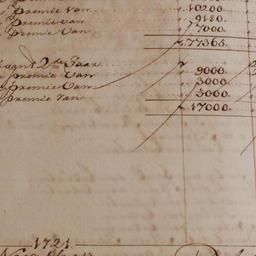 Premie van 10200.
Premie van 9180.
Premie van 7000.
77365.
2de Jaar
premie van 9000.
premie van 3000.
premie van 5000.
17000.
1721.